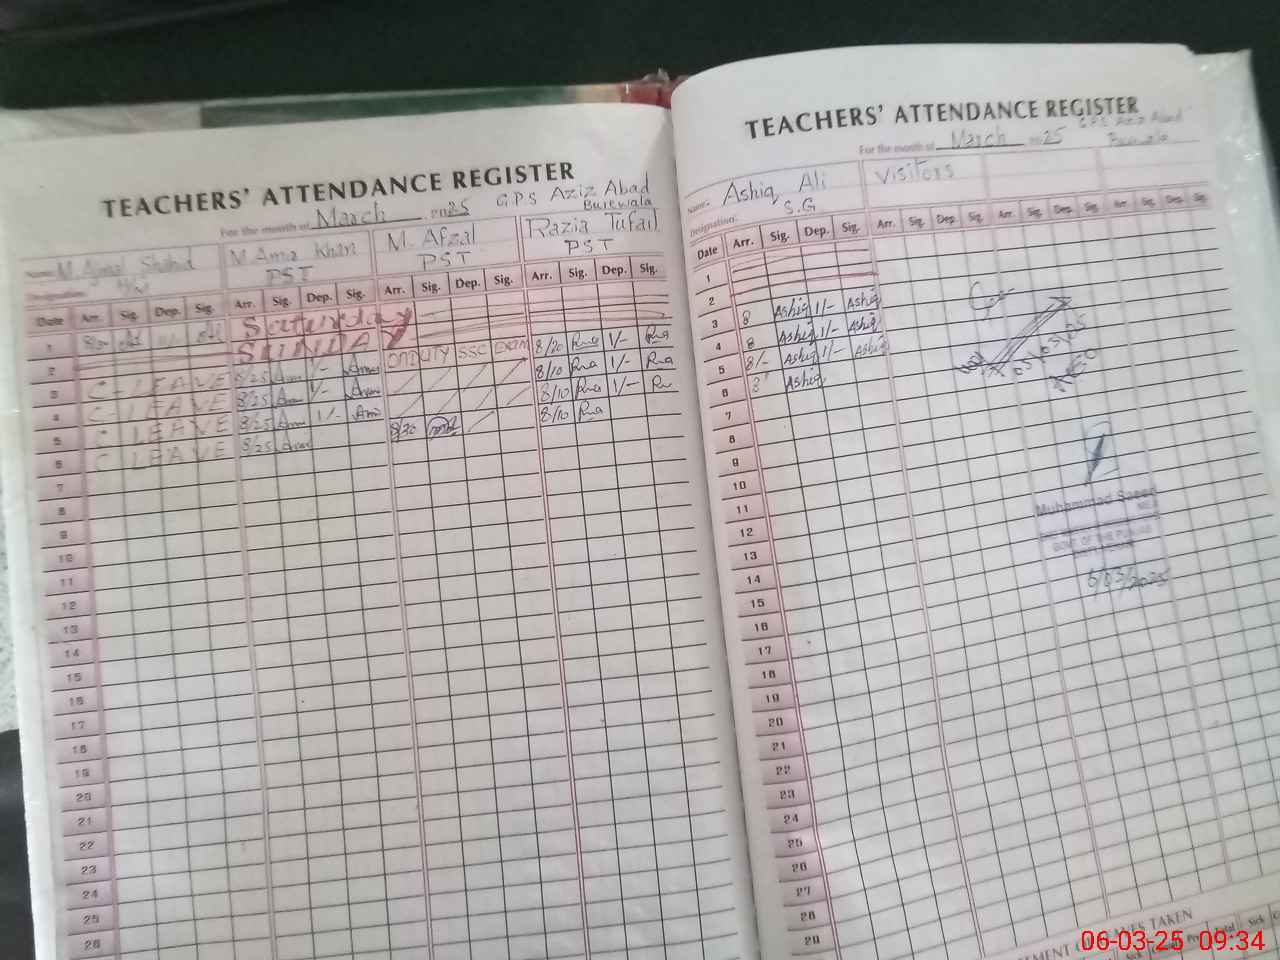 TEACHERS' ATTENDANCE REGISTER
G.P.S Aziz Abad
Burewala
For the month of March 2025
Name: M. Ajmal Shahid
M. Amir Khan
M. Afzal
Razia Tufail
Designation: H/M
PST
PST
PST
Date Arr. Sig. Dep. Sig. Arr. Sig. Dep. Sig. Arr. Sig. Dep. Sig. Arr. Sig. Dep. Sig.
1 Saturday
2 SUNDAY
3 C-LEAVE 8/25 1/- ON DUTY SSC EXAM 8/20 1/-
4 C-LEAVE 8/25 1/- 8/10 1/-
5 C LEAVE 8/25 1/- 8/10 1/-
6 C LEAVE 8/25 8/30 8/10
7
8
9
10
11
12
13
14
15
16
17
18
19
20
21
22
23
24
25
26
TEACHERS' ATTENDANCE REGISTER
G.P.S Aziz Abad
Burewala
For the month of March 2025
Name: Ashiq Ali
Visitors
Designation: S.G
Date Arr. Sig. Dep. Sig. Arr. Sig. Dep. Sig. Arr. Sig. Dep. Sig. Arr. Sig. Dep. Sig.
1
2
3 8 Ashiq 1/- Ashiq
4 8 Ashiq 1/- Ashiq
5 8/- Ashiq 1/- Ashiq
6 8 Ashiq
7
8
9
10
11
12
13
14
15
16
17
18
19
20
21
22
23
24
25
26
27
28
29
05/03/25
AEO
Muhammad Saeed
GOVT OF THE PUNJAB
6/03/2025
LEAVES TAKEN
06-03-25 09:34